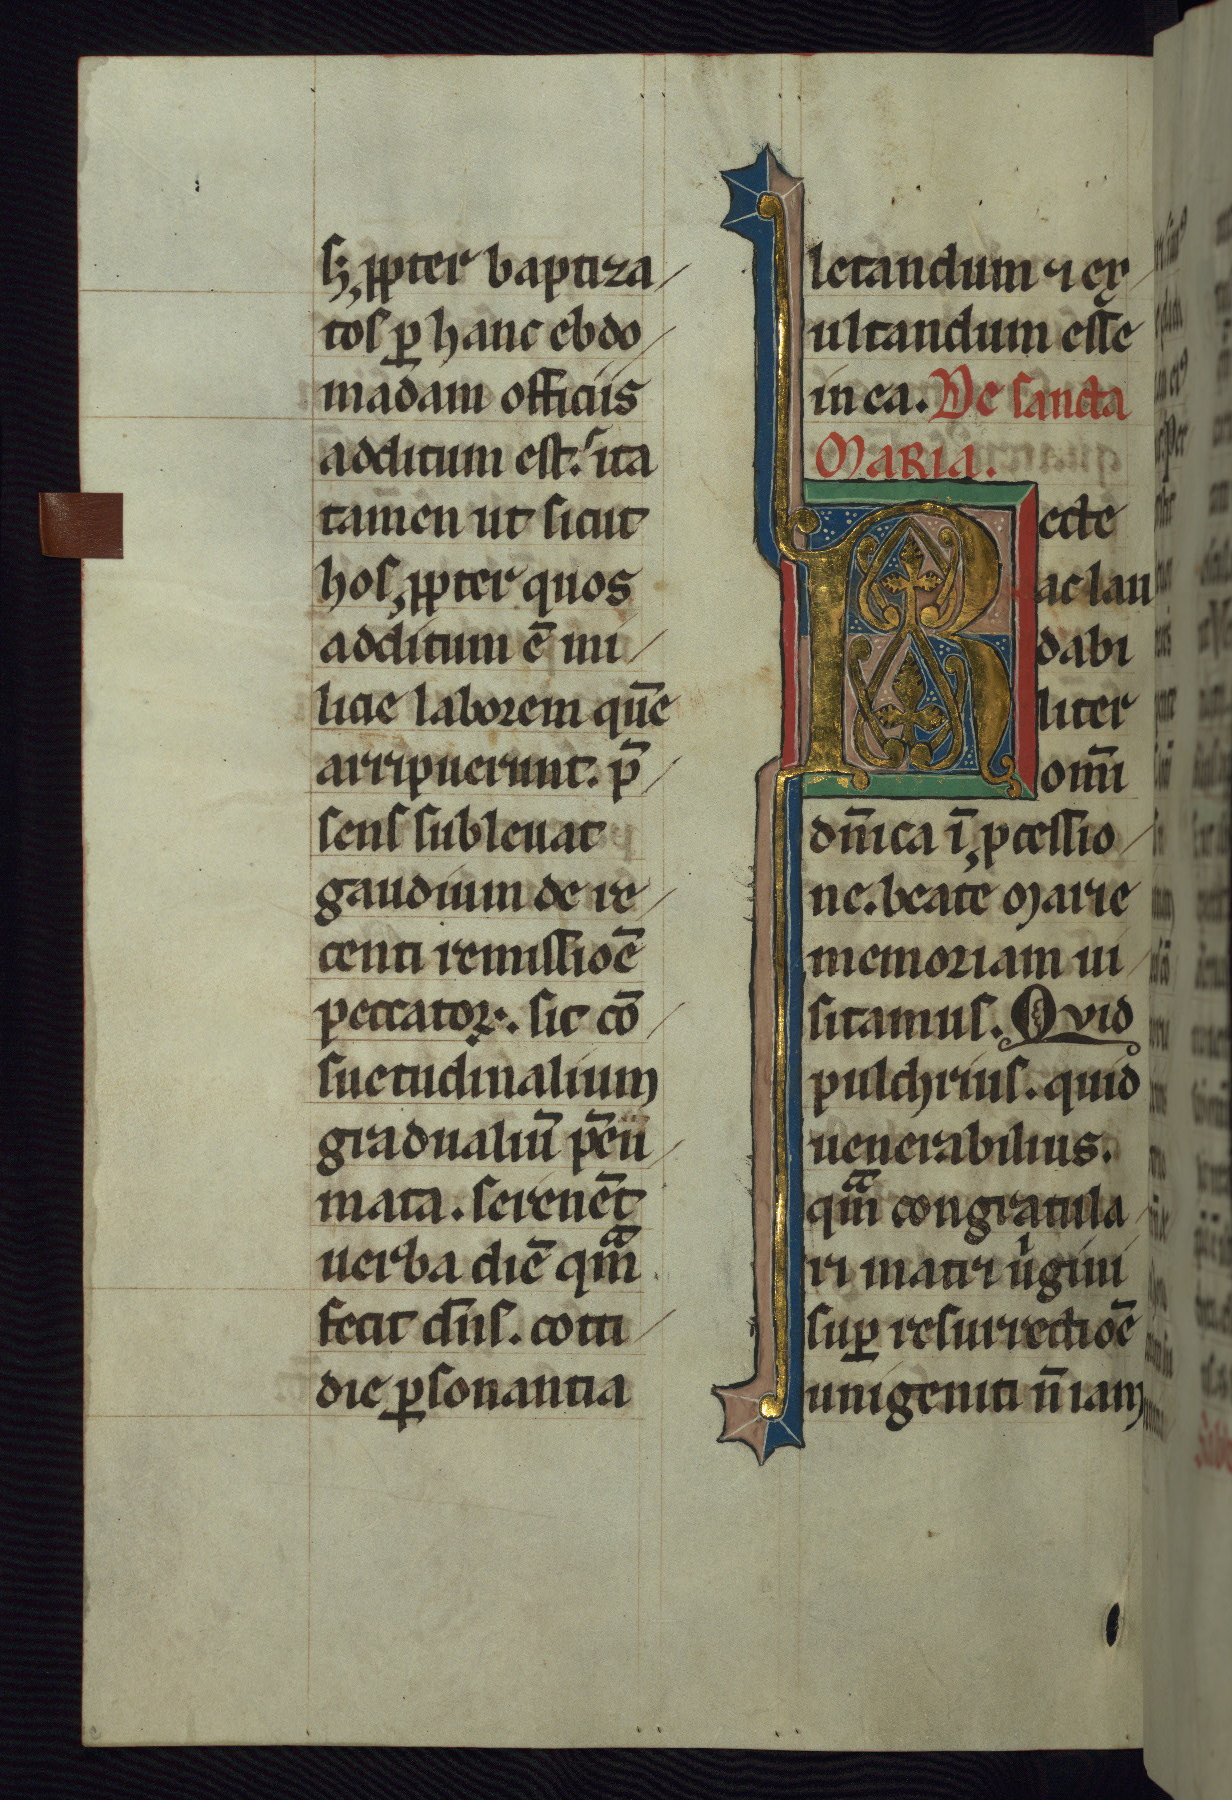 hꝫ ꝓpter baptiza
tos ꝑ hanc ebdo
madam officiis
additum est. ita
tam̄en ut sicut
hos ꝓpter quos
additum ē mi
licie laborem qūe
arripuerunt. p̄
sens subleuat
gaudium de re
centi remissioē
peccatoꝝ. sic cō
suetudinalium
gradualiū p̄eu
mata. serenēt
uerba diē qm̄
fecit dn̄s. cotti
die ꝑsonantia
letandum ⁊ ex
ultandum esse
in ea. De sancta
Maria.
Recte
ac lau
dabi
liter
om̄i
dn̄ica ī ꝓcessio
ne. beate Marie
memoriam ui
sitamus. Quid
pulchrius. quid
uenerabilius.
qm̄ congratula
ri matri uͥgini
suꝑ resurrectioē
unigeniti n̄ iam